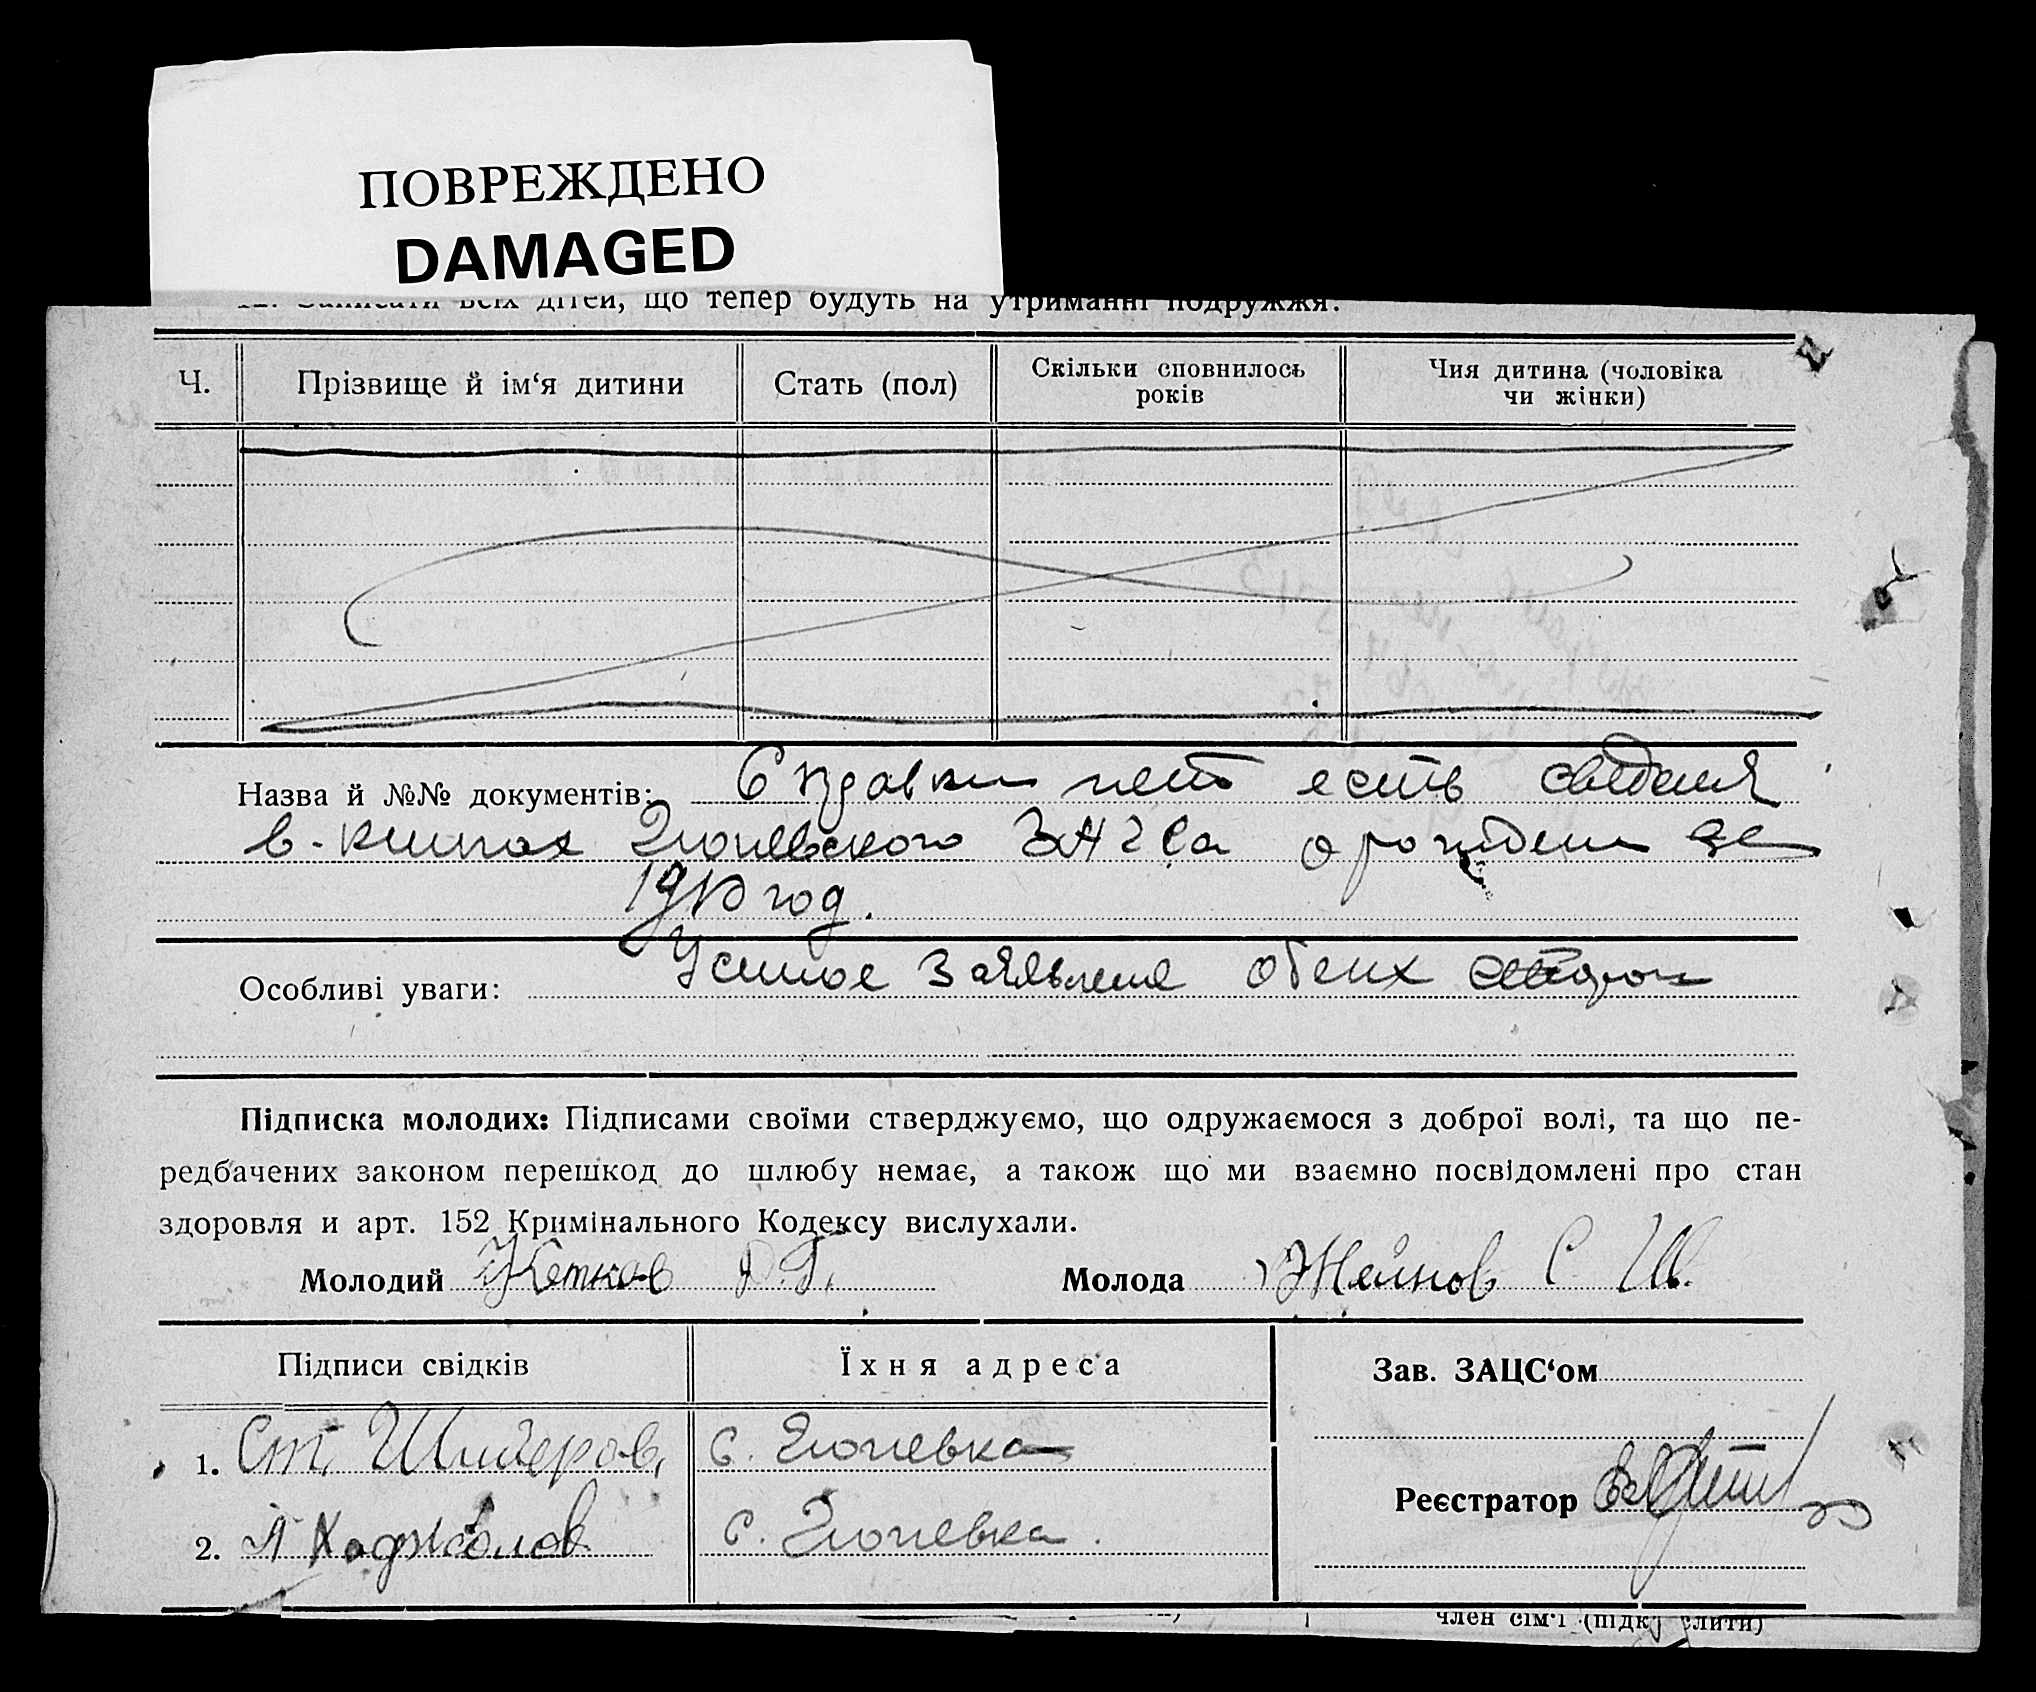 ПОВРЕЖДЕНО
DAMAGED
12. Записати всіх дітей, що тепер будуть на утриманні подружжя:
Ч. Прізвище й ім‘я дитини Стать (пол) Скільки сповнилось років Чия дитина (чоловіка чи жінки)
Назва й №№ документів: Справки нет есть сведеня
в книгах ЗАГСа о рождени за
1910 год.
Особливі уваги: Усное Заявленя обеих сторон
Підписка молодих: Підписами своїми стверджуємо, що одружаємося з доброї волі, та що пе-
редбачених законом перешкод до шлюбу немає, а також що ми взаємно посвідомлені про стан
здоровля и арт. 152 Кримінального Кодексу вислухали.
Молодий Молода С Ш.
Підписи свідків Їхня адреса Зав. ЗАЦС‘ом
1. Ст. с.
Реєстратор
2. с.
член сім‘ї